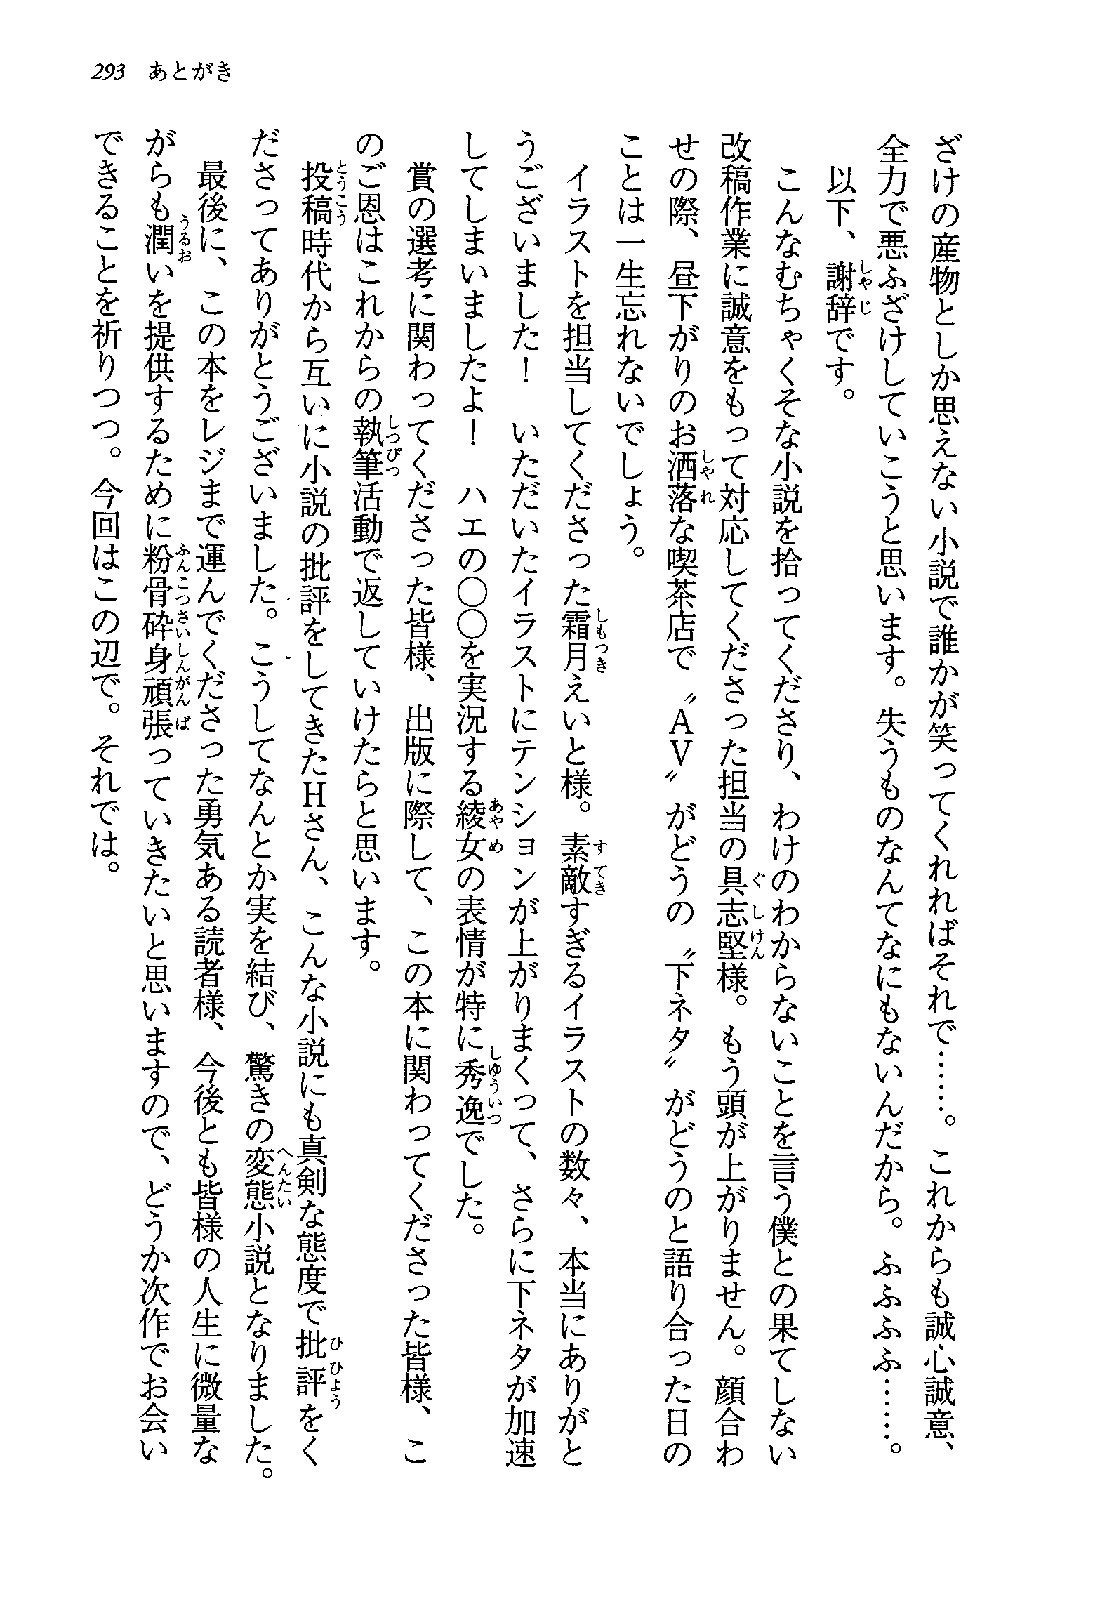 293 あとがき
ざけの産物としか思えない小説で誰かが笑ってくれればそれで……。これからも誠心誠意、
全力で悪ふざけしていこうと思います。失うものなんてなにもないんだから。ふふふふ……。
以下、謝辞です。
こんなむちゃくそな小説を拾ってくださり、わけのわからないことを言う僕との果てしない
改稿作業に誠意をもって対応してくださった担当の具志堅様。もう頭が上がりません。顔合わ
せの際、昼下がりのお洒落な喫茶店で〝AV〟がどうの〝下ネタ〟がどうのと語り合った日の
ことは一生忘れないでしょう。
イラストを担当してくださった霜月えいと様。素敵すぎるイラストの数々、本当にありがと
うございました！　いただいたイラストにテンションが上がりまくって、さらに下ネタが加速
してしまいましたよ！　ハエの〇〇を実況する綾女の表情が特に秀逸でした。
賞の選考に関わってくださった皆様、出版に際して、この本に関わってくださった皆様、こ
のご恩はこれからの執筆活動で返していけたらと思います。
投稿時代から互いに小説の批評をしてきたHさん、こんな小説にも真剣な態度で批評をく
ださってありがとうございました。こうしてなんとか実を結び、驚きの変態小説となりました。
最後に、この本をレジまで運んでくださった勇気ある読者様、今後とも皆様の人生に微量な
がらも潤いを提供するために粉骨砕身頑張っていきたいと思いますので、どうか次作でお会い
できることを祈りつつ。今回はこの辺で。それでは。